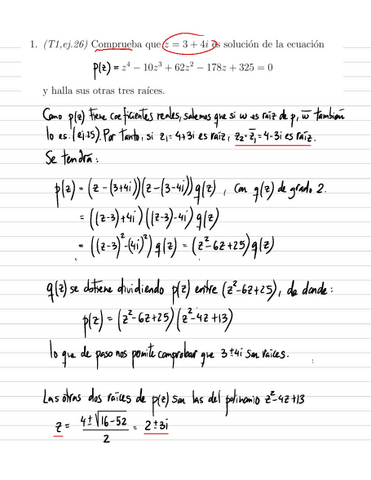 1. (T1,ej.26) Comprueba que z = 3 + 4i es solución de la ecuación
p(z) = z⁴ − 10z³ + 62z² − 178z + 325 = 0
y halla sus otras tres raíces.
Como p(z) tiene coeficientes reales, sabemos que si w es raíz de p, w̅ también
lo es (ej.25). Por tanto, si z₁=4+3i es raíz, z₂=z̅₁=4-3i es raíz.
Se tendrá:
p(z) = (z-(3+4i))(z-(3-4i))q(z), con q(z) de grado 2.
= ((z-3)+4i)((z-3)-4i) q(z)
= ((z-3)²-(4i)²) q(z) = (z²-6z+25)q(z)
q(z) se obtiene dividiendo p(z) entre (z²-6z+25), de donde:
p(z) = (z²-6z+25)(z²-4z+13)
lo que de paso nos permite comprobar que 3±4i son raíces.
Las otras dos raíces de p(z) son las del polinomio z²-4z+13
z = (4±√(16-52))/2 = 2±3i